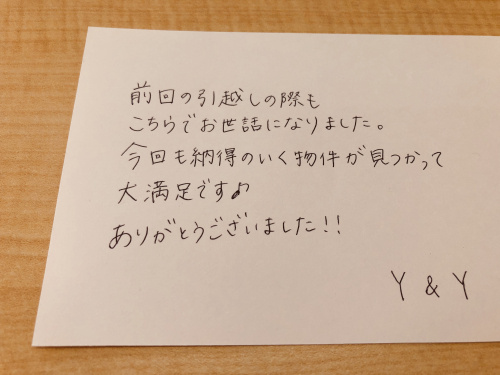 前回の引越しの際も
こちらでお世話になりました。
今回も納得のいく物件が見つかって
大満足です♪
ありがとうございました!!
Y & Y